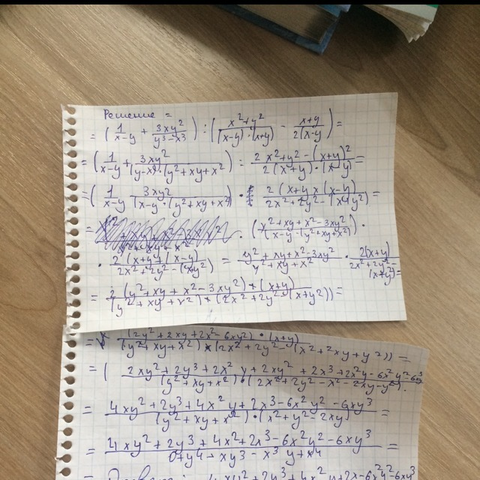 Решение =
= (1/(x-y) + 3xy²/(y³-x³)) : ((x²+y²)/((x-y)·(x+y)) - (x+y)/(2(x-y)) =
= (1/(x-y) + 3xy²/((y-x)(y²+xy+x²)) : (2x²+y²-(x+y)²)/(2(x+y)·(x-y)) =
- (1/(x-y) 3xy²/((x-y)·(y²+xy+x²)) · 2(x+y)x(x-y)/(2x²+2y²-(x+y²) =
= ((y²+xy+x²-3xy²)/((x-y)·(y²+xy+x²)) ·
· 2(x+y)(x-y)/(2x²+2y²-(x+y²) = (y²+xy+x²-3xy²)/(y²+xy+x²) · 2(x+y)/(2x²+2y²-(x+y²) =
= 2(y²+xy+x²-3xy²)·(x+y)/((y²+xy+x²)·(2x²+2y²-(x+y²)) =
= (2y²+2xy+2x²-6xy²)·(x+y)/((y²+xy+x²)·(2x²+2y²-(x²+2xy+y²)) =
= (2xy²+2y³+2x²y+2xy²+2x³+2x²y-6x²y²-6xy³/((y²+xy+x²)·(2x²+2y²-x²-2xy-y²) =
= (4xy²+2y³+4x²y+2x³-6x²y²-6xy³)/((y²+xy+x²)·(x²+y²-2xy) =
= (4xy²+2y³+4x²+2x³-6x²y²-6xy³)/(y⁴-xy³-x³y+x⁴) =